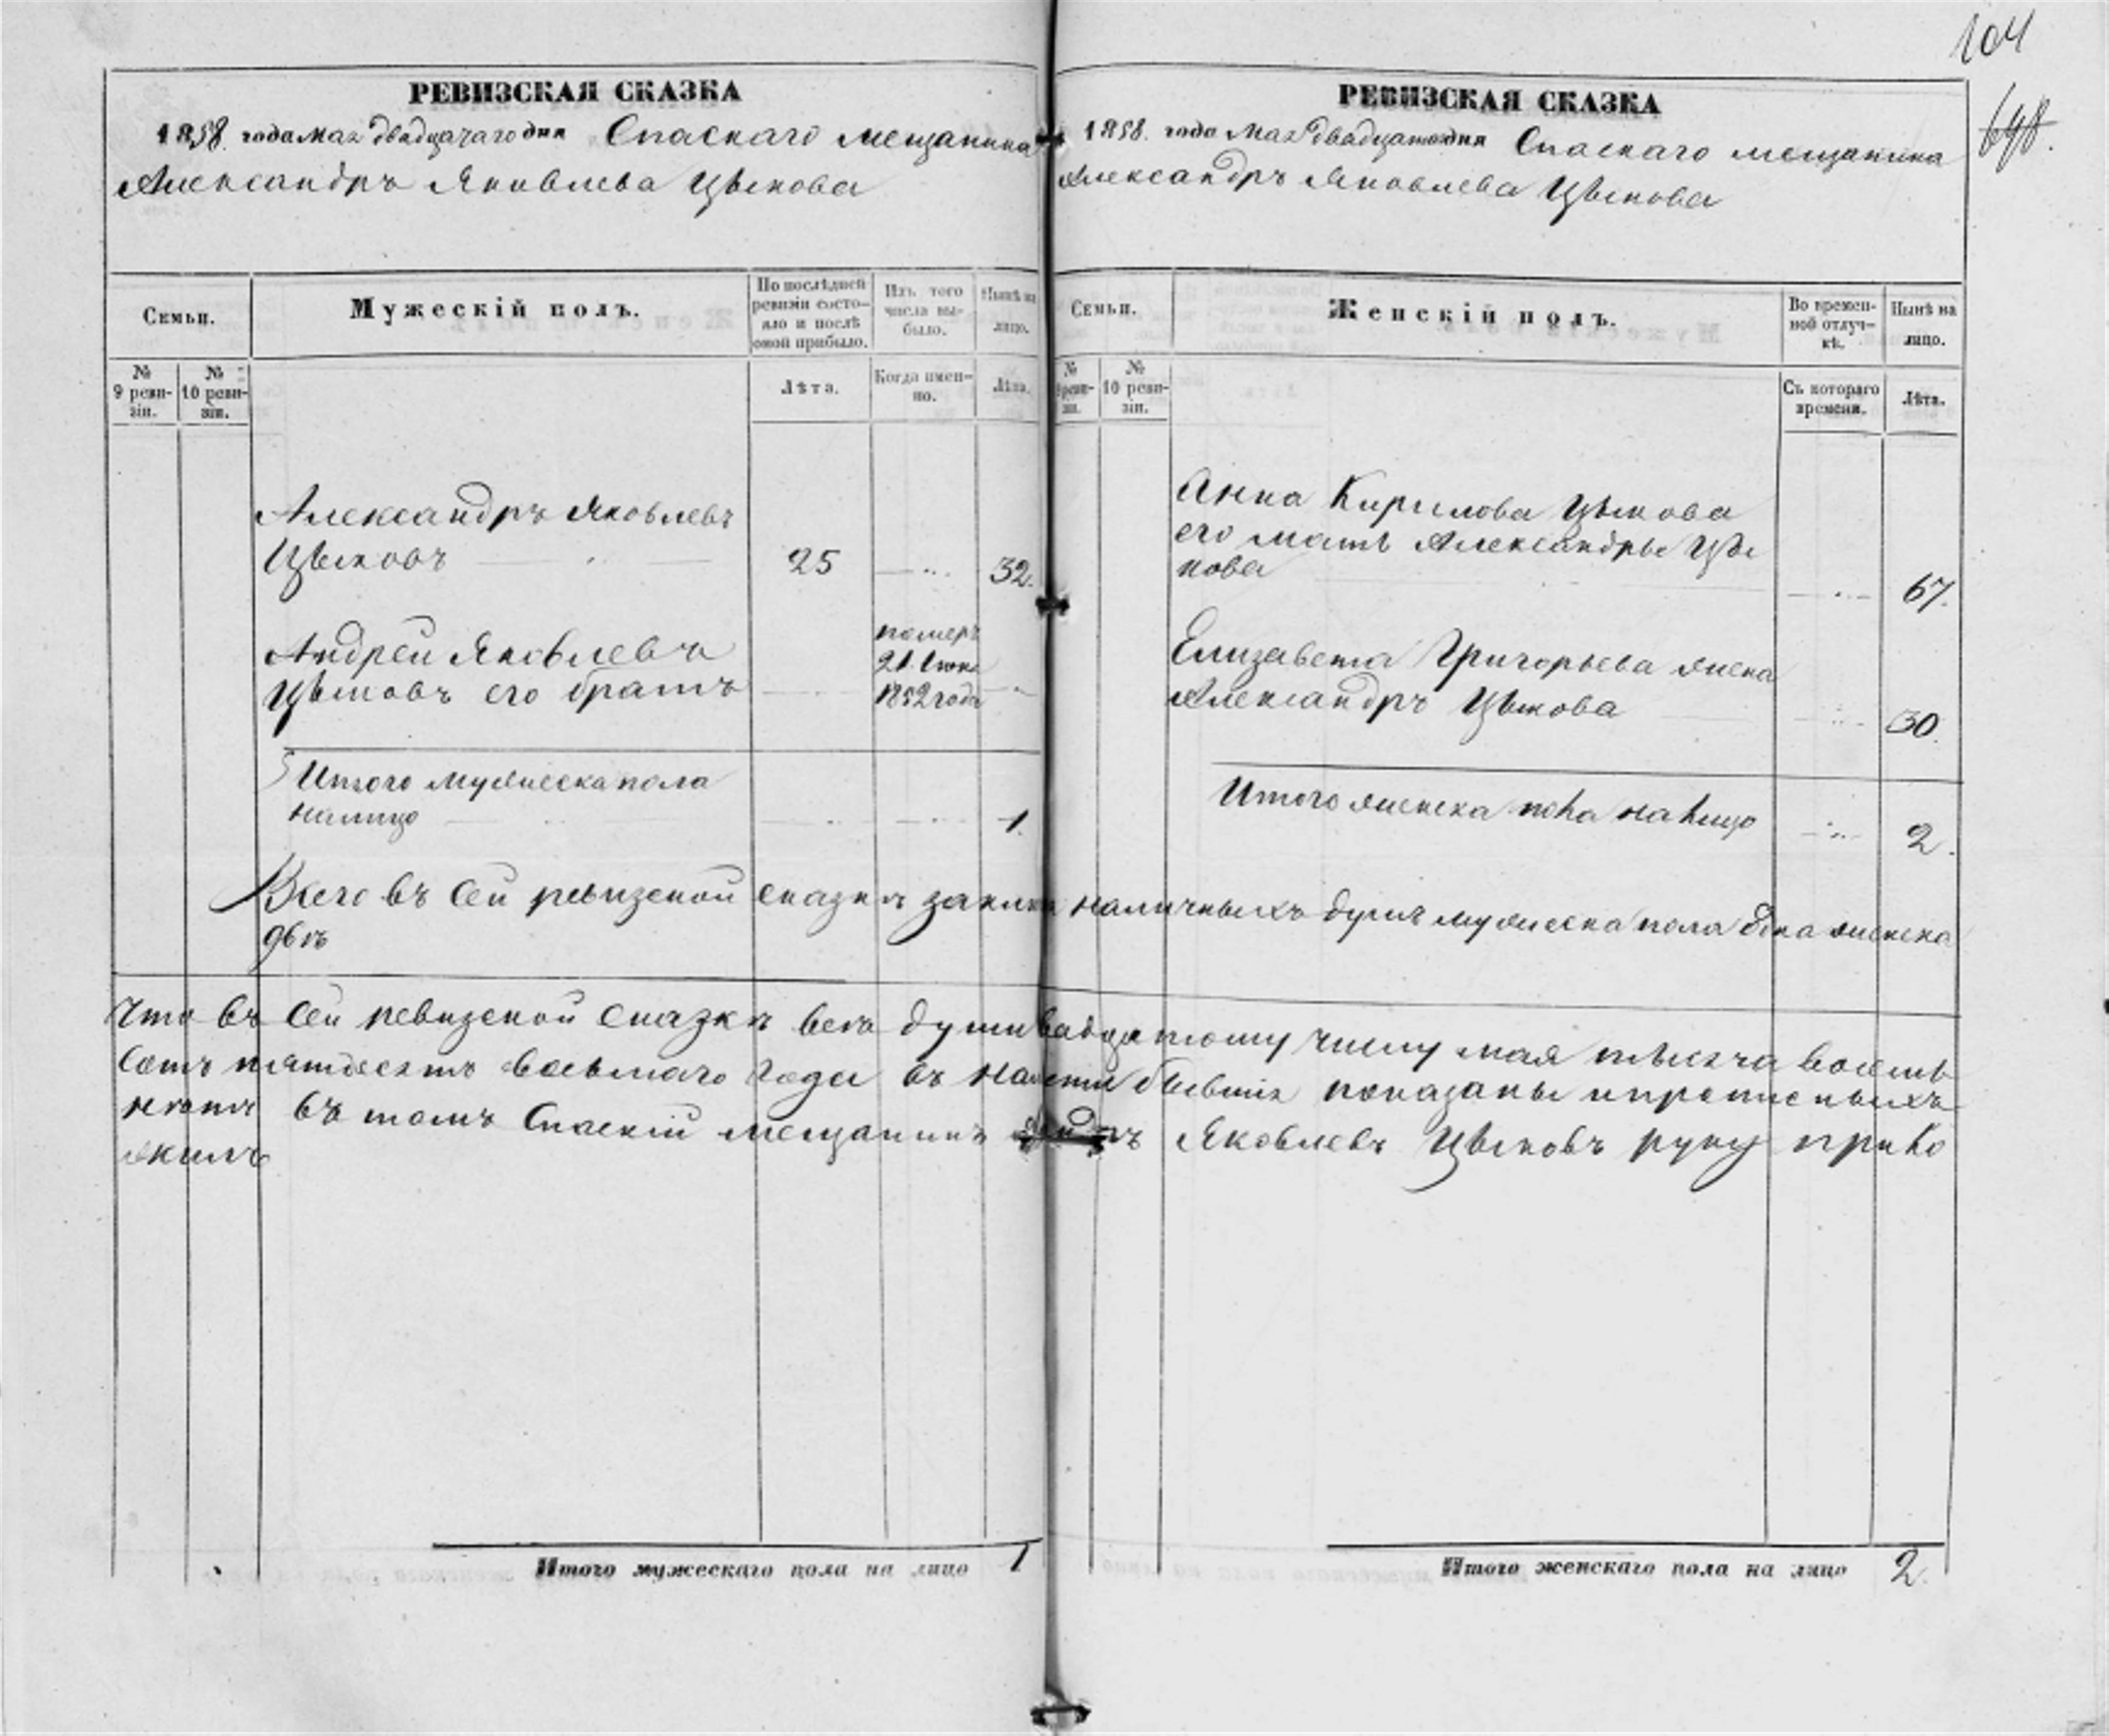 104
698.
РЕВИЗСКАЯ СКАЗКА
1858. года мая двадцатаго дня Спаскаго мещанина
Александръ Яковлева Цыкова
Семьи.
Мужескій полъ.
По послѣдней ревизіи состояло и послѣ оной прибыло.
Изъ того числа выбыло.
Нынѣ на лицо.
№ 9 ревизіи.
№ 10 ревизіи.
Лѣта.
Когда именно.
Лѣта.
Александръ Яковлевъ
Цыковъ 25 32.
Андрей Яковлевъ
Цыковъ его братъ
померъ
21. Июня
1852 года
Итого мужеска пола
налицо 1.
РЕВИЗСКАЯ СКАЗКА
1858. года Мая двадцатого дня Спаскаго мещанина
Александръ Яковлева Цыкова
Семьи.
Женскій полъ.
Во временной отлучкѣ.
Нынѣ на лицо.
№ 9 ревизіи.
№ 10 ревизіи.
Съ котораго времени.
Лѣта.
Анна Кирилова Цыкова
его мать Александры Цы
кова 67.
Елизавета Григорьева жена
Александръ Цыкова 30.
Итого женска пола налицо 2.
Всего въ сей ревизской сказкѣ наличныхъ душъ мужеска пола одна женска
двѣ
Что въ сей ревизской сказкѣ все души тому числу мая тысяча восемь
сотъ пятдесятъ восьмаго года въ показаны и
нетъ въ томъ Спаскій мещанинъ Яковлевъ Цыковъ руку прило
жилъ
Итого мужескаго пола на лицо 1
Итого женскаго пола на лицо 2.